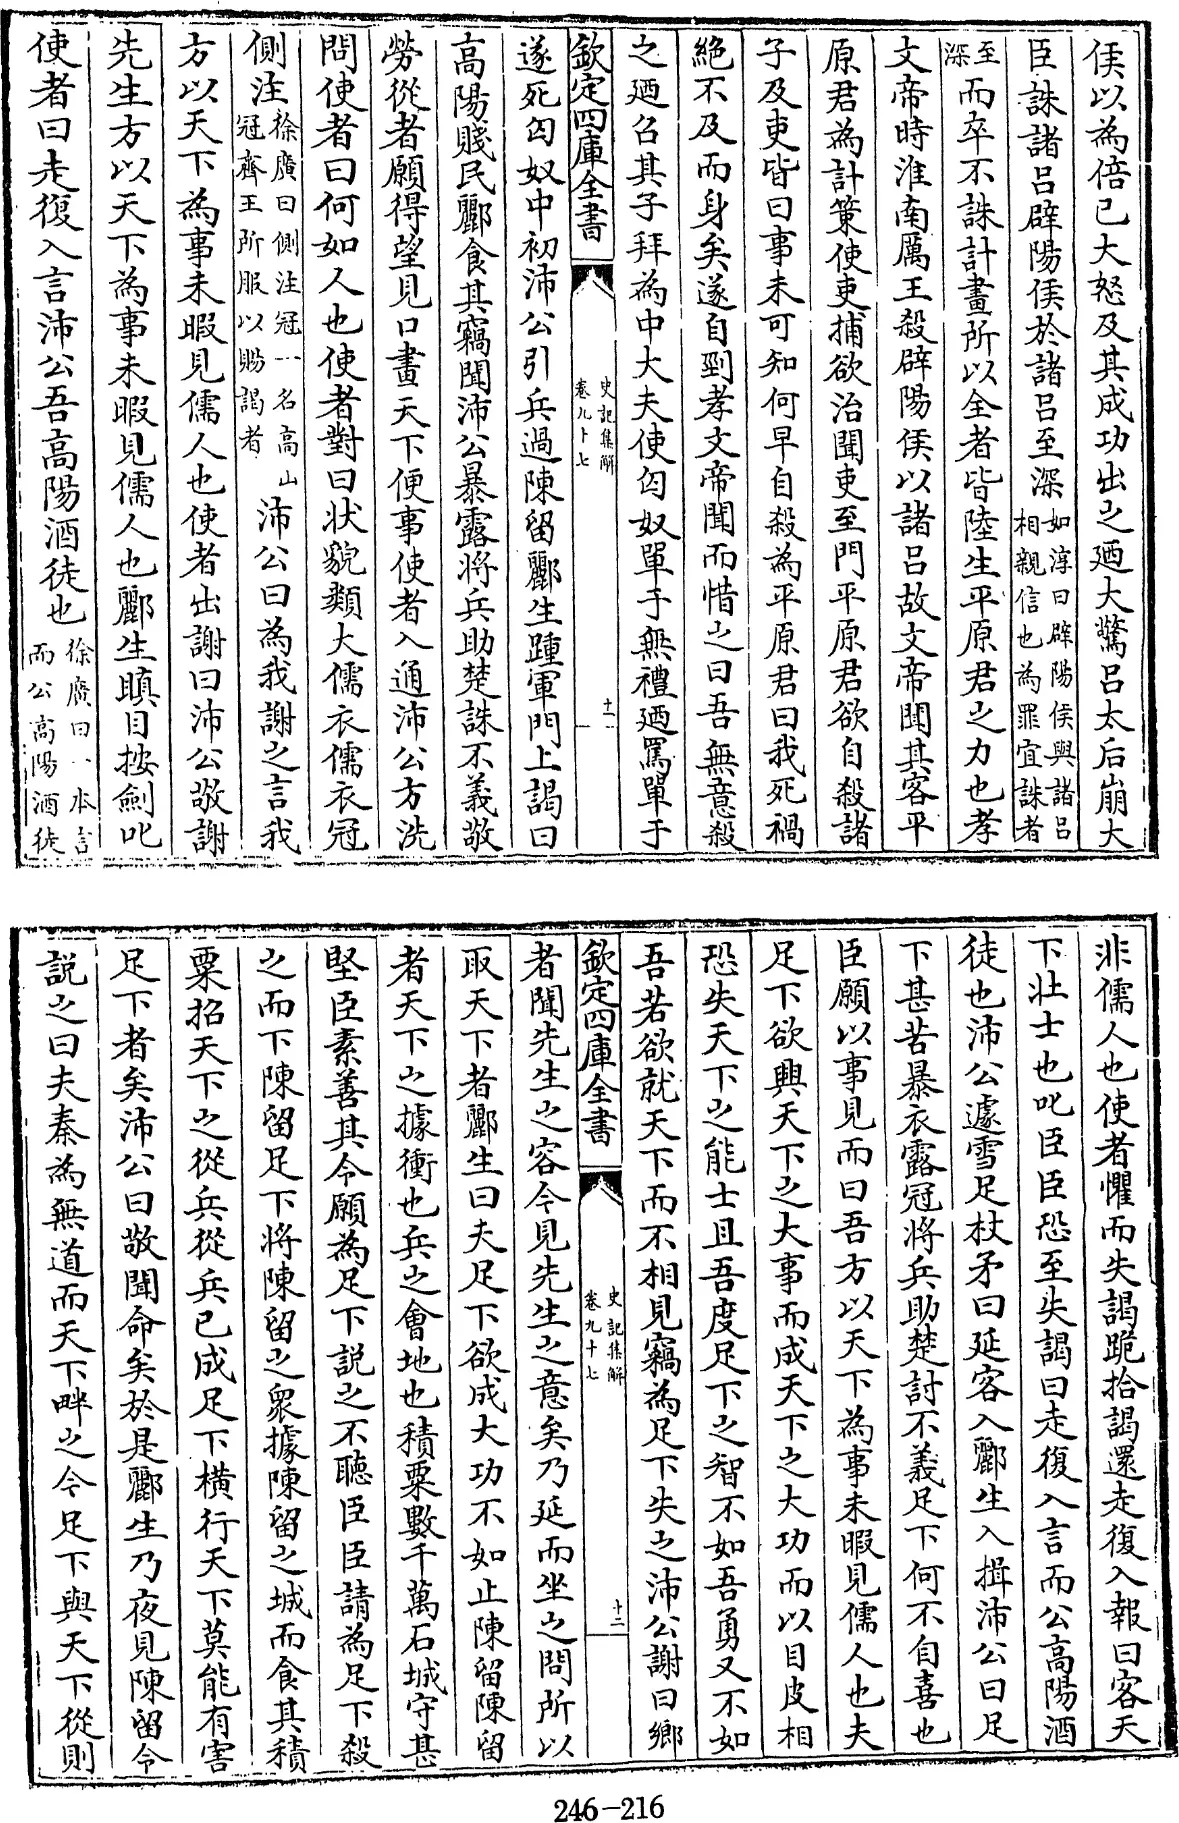 侯以為倍已大怒及其成功出之廼大驚呂太后崩大
臣誅諸呂辟陽侯於諸呂至深如淳曰辟陽侯與諸呂相親信也為罪宜誅者
至深而卒不誅計畫所以全者皆陸生平原君之力也孝
文帝時淮南厲王殺辟陽侯以諸呂故文帝聞其客平
原君為計策使吏捕欲治聞吏至門平原君欲自殺諸
子及吏皆曰事未可知何早自殺為平原君曰我死禍
絶不及而身矣遂自剄孝文帝聞而惜之曰吾無意殺
之廼召其子拜為中大夫使匈奴單于無禮廼罵單于
欽定四庫全書
史記集解
卷九十七
十一
遂死匈奴中初沛公引兵過陳留酈生踵軍門上謁曰
高陽賤民酈食其竊聞沛公暴露將兵助楚誅不義敬
勞從者願得望見口畫天下便事使者入通沛公方洗
問使者曰何如人也使者對曰状貌類大儒衣儒衣冠
側注徐廣曰側注冠一名高山冠齊王所服以賜謁者沛公曰為我謝之言我
方以天下為事未暇見儒人也使者出謝曰沛公敬謝
先生方以天下為事未暇見儒人也酈生瞋目按劍叱
使者曰走復入言沛公吾高陽酒徒也徐廣曰一本言而公高陽酒徒
非儒人也使者懼而失謁跪拾謁還走復入報曰客天
下壯士也叱臣臣恐至失謁曰走復入言而公高陽酒
徒也沛公遽雪足杖矛曰延客入酈生入揖沛公曰足
下甚苦暴衣露冠將兵助楚討不義足下何不自喜也
臣願以事見而曰吾方以天下為事未暇見儒人也夫
足下欲興天下之大事而成天下之大功而以目皮相
恐失天下之能士且吾度足下之智不如吾勇又不如
吾若欲就天下而不相見竊為足下失之沛公謝曰鄉
欽定四庫全書
史記集解
卷九十七
十二
者聞先生之容今見先生之意矣乃延而坐之問所以
取天下者酈生曰夫足下欲成大功不如止陳留陳留
者天下之據衝也兵之會地也積粟數千萬石城守甚
堅臣素善其令願為足下説之不聽臣臣請為足下殺
之而下陳留足下將陳留之衆據陳留之城而食其積
粟招天下之從兵從兵已成足下橫行天下莫能有害
足下者矣沛公曰敬聞命矣於是酈生乃夜見陳留令
説之曰夫秦為無道而天下畔之今足下與天下從則
246-216